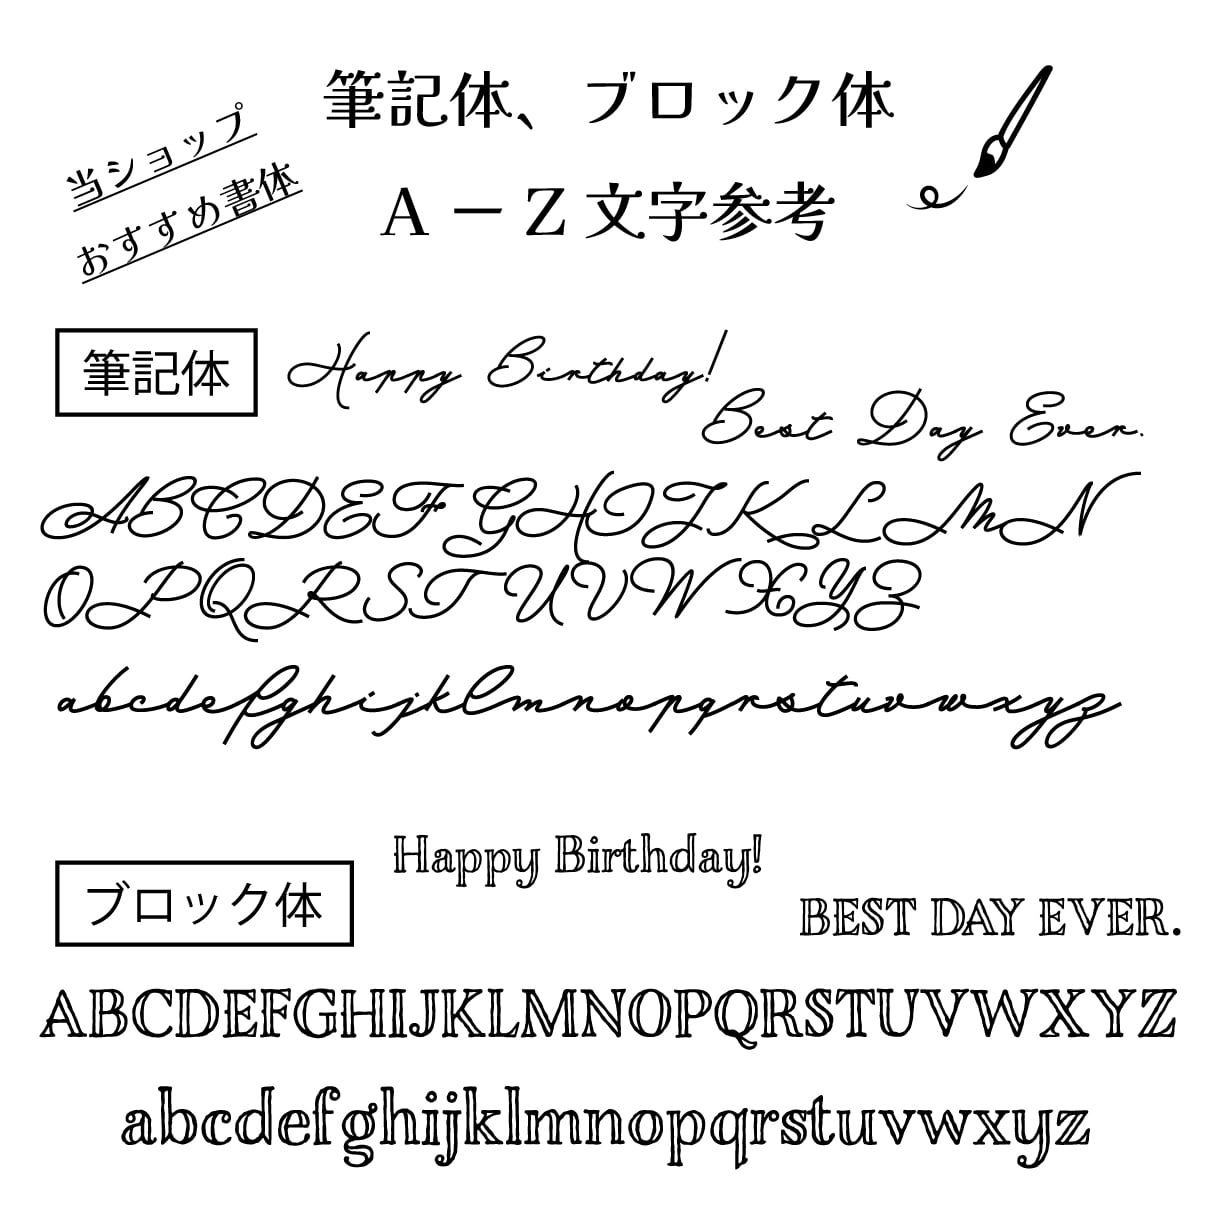 当ショップ
おすすめ書体
筆記体、ブロック体
A－Z文字参考
筆記体
Happy Birthday!
Best Day Ever.
ABCDEFGHIJKLMN
OPQRSTUVWXYZ
abcdefghijklmnopqrstuvwxyz
ブロック体
Happy Birthday!
BEST DAY EVER.
ABCDEFGHIJKLMNOPQRSTUVWXYZ
abcdefghijklmnopqrstuvwxyz